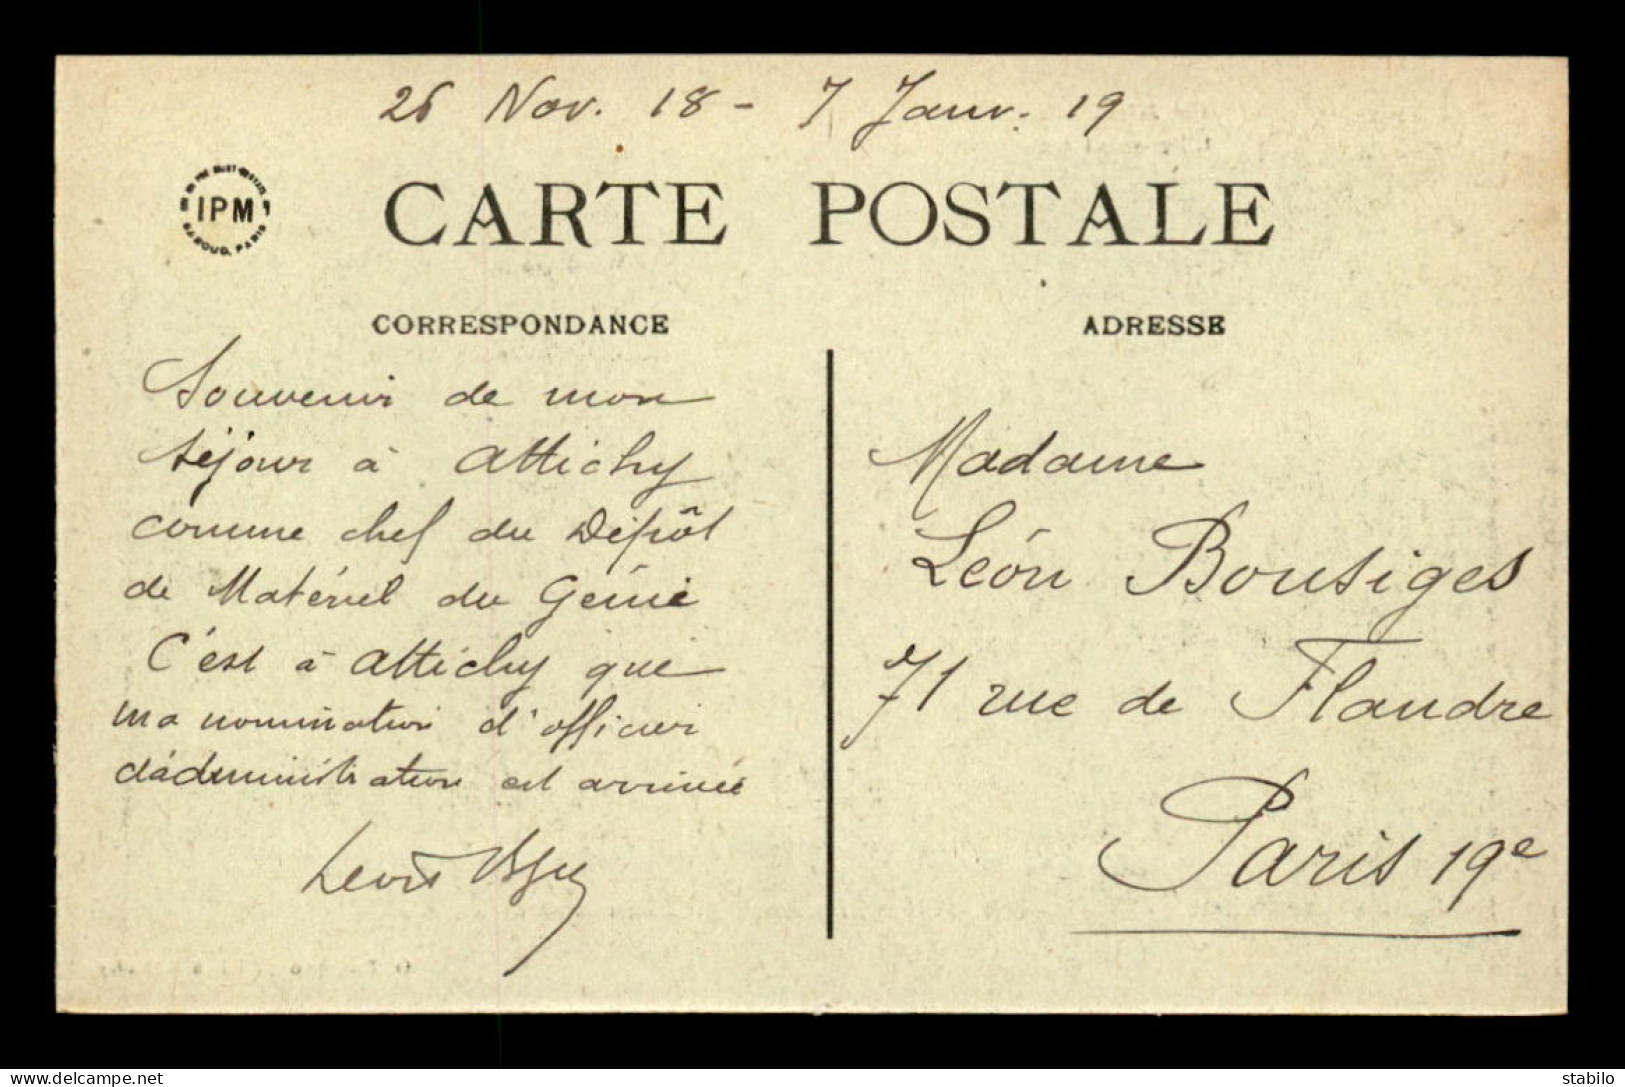 26 Nov. 18 - 7 Janv. 19
IPM
PARIS
CARTE POSTALE
CORRESPONDANCE
ADRESSE
Souvenir de mon
séjour à Attichy
comme chef du Dépôt
de Matériel du Génie
C'est à Attichy que
ma nomination d'officier
d'administration est arrivée
Madame
Léon Bousiges
71 rue de Flandre
Paris 19e
delcampe.net
stabilo